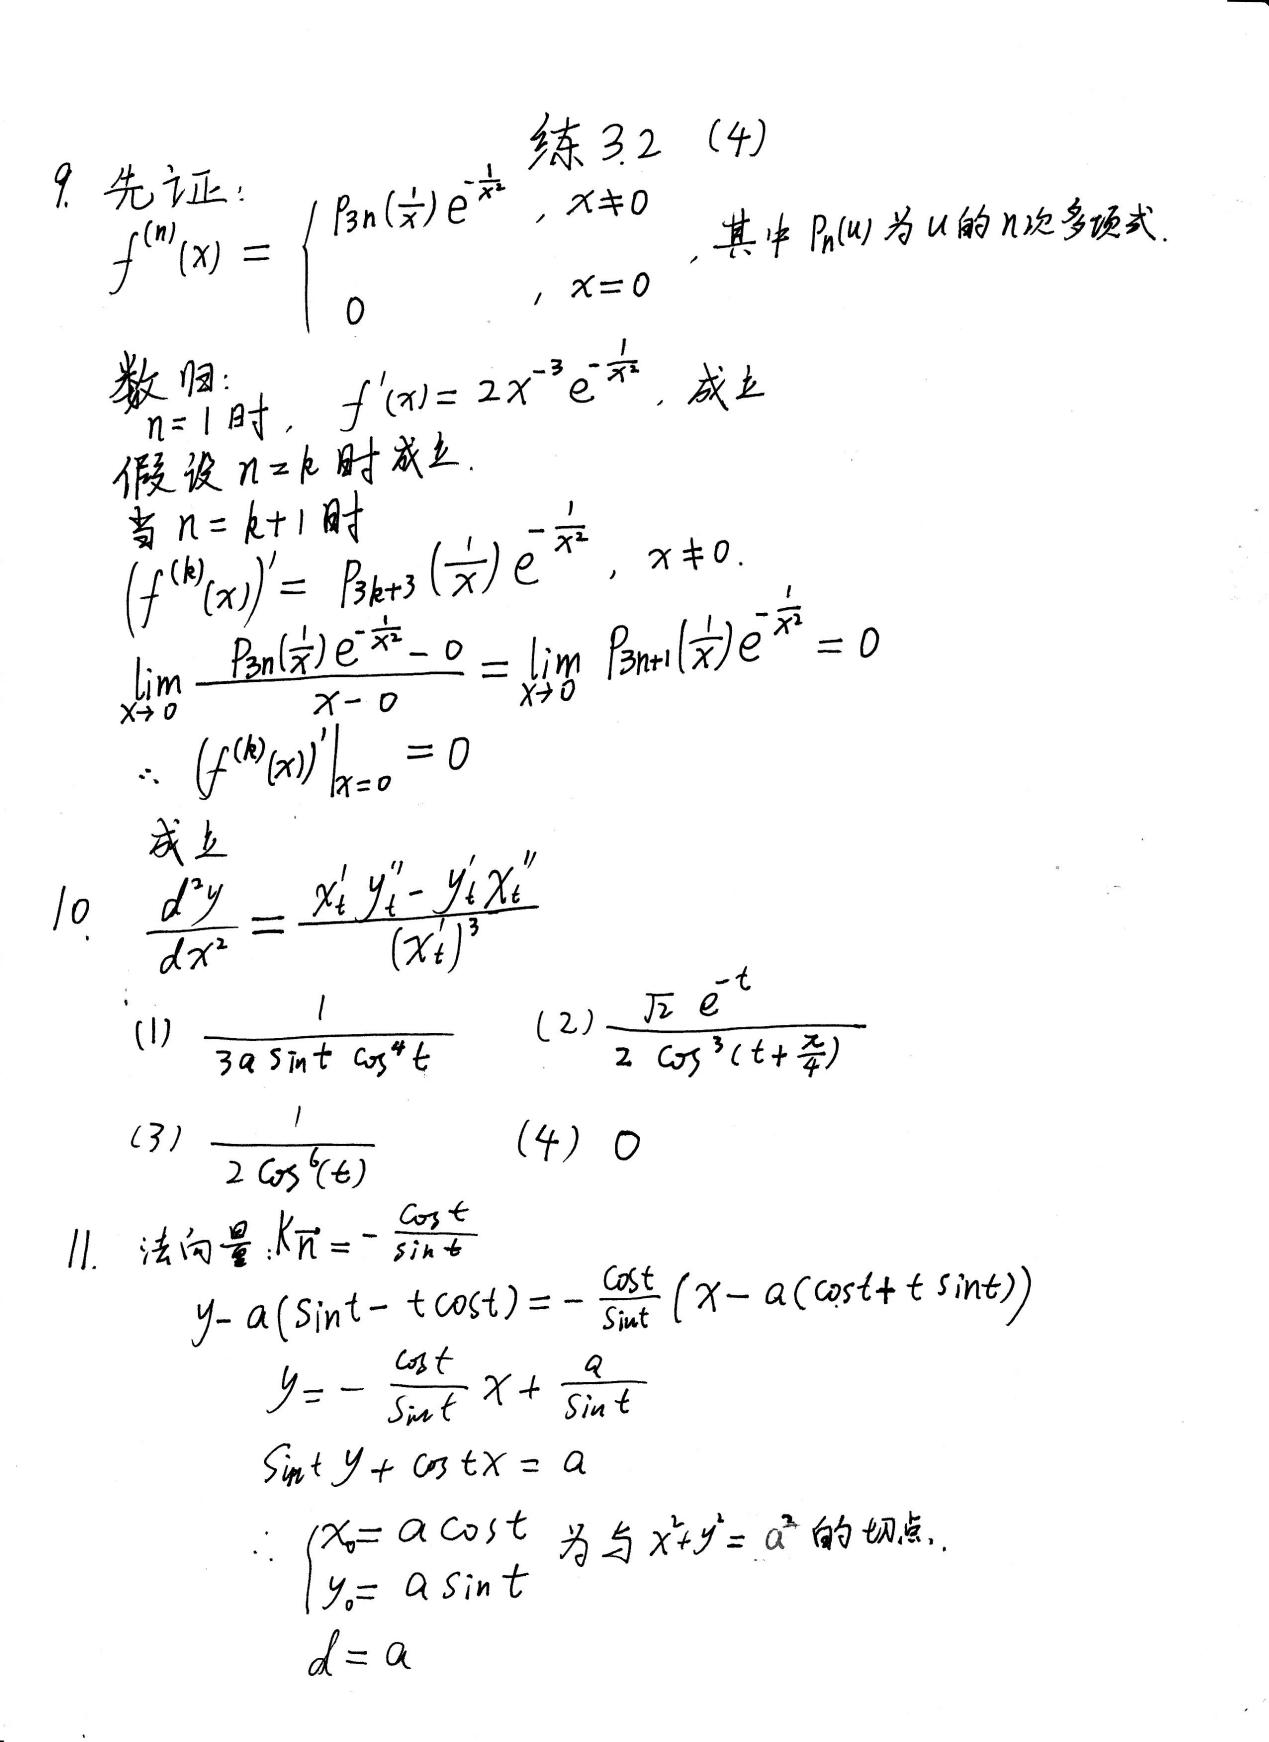 练3.2 (4)
9. 先证:
f^{(n)}(x) = { P_{3n}(1/x) e^{-1/x²} , x≠0
0 , x=0 , 其中 P_n(u) 为 u 的 n次多项式.
数归:
n=1时, f'(x) = 2x^{-3} e^{-1/x²} , 成立
假设 n=k 时成立.
当 n=k+1时
(f^{(k)}(x))' = P_{3k+3}(1/x) e^{-1/x²} , x≠0.
lim_{x→0} (P_{3n}(1/x) e^{-1/x²} - 0)/(x-0) = lim_{x→0} P_{3n+1}(1/x) e^{-1/x²} = 0
∴ (f^{(k)}(x))'|_{x=0} = 0
成立
10. d²y/dx² = (x_t' y_t'' - y_t' x_t'')/(x_t')³
(1) 1/(3a sint cos⁴t) (2) √2 e^{-t}/(2 cos³(t+π/4))
(3) 1/(2 cos⁶(t)) (4) 0
11. 法向量: K_{\vec{n}} = - cost/sint
y - a(sint - tcost) = - cost/sint (x - a(cost + t sint))
y = - cost/sint x + a/sint
sint y + cos tx = a
∴ { x₀ = a cost 为与 x²+y²=a² 的切点.
y₀ = a sint
d = a